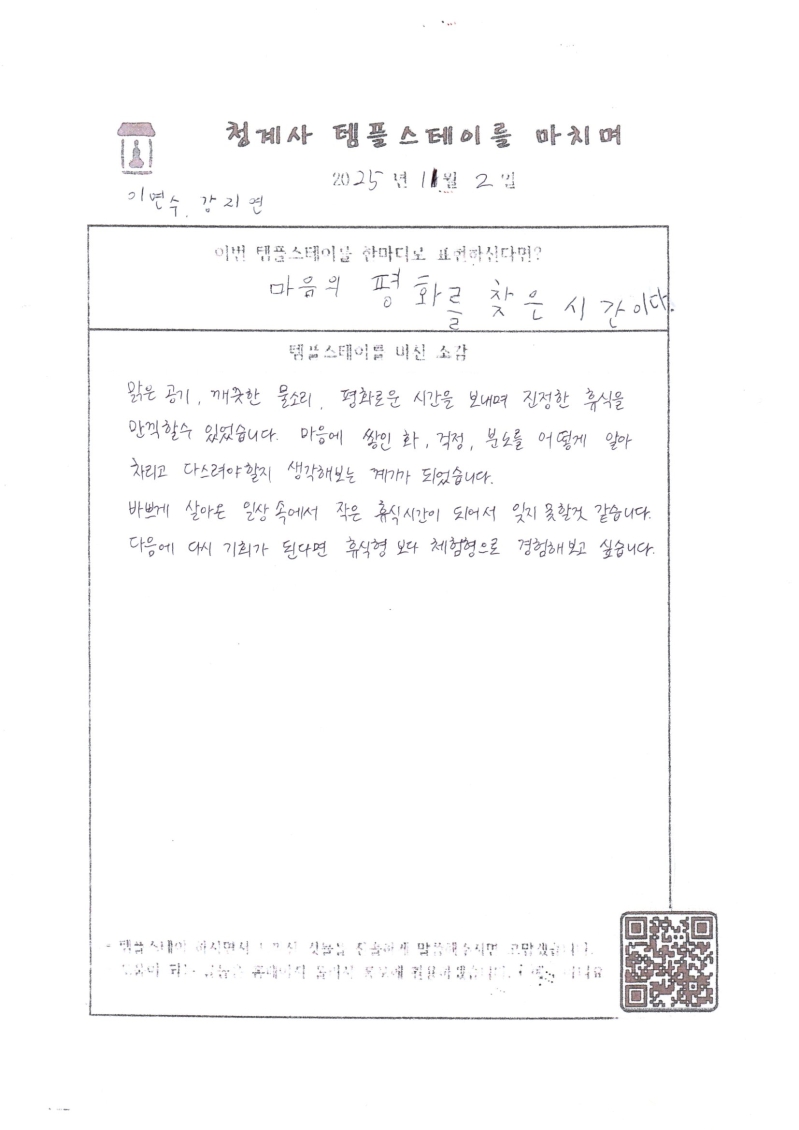 청계사 템플스테이를 마치며
2025년 11월 2일
이면수, 강지연
이번 템플스테이를 한마디로 표현하신다면?
마음의 평화를 찾은 시간이다.
템플스테이를 마신 소감
맑은 공기, 깨끗한 물소리, 평화로운 시간을 보내며 진정한 휴식을
만끽할수 있었습니다. 마음에 쌓인 화, 걱정, 분노를 어떻게 알아
차리고 다스려야할지 생각해보는 계기가 되었습니다.
바쁘게 살아온 일상 속에서 작은 휴식시간이 되어서 잊지 못할것 같습니다.
다음에 다시 기회가 된다면 휴식형 보다 체험형으로 경험해보고 싶습니다.